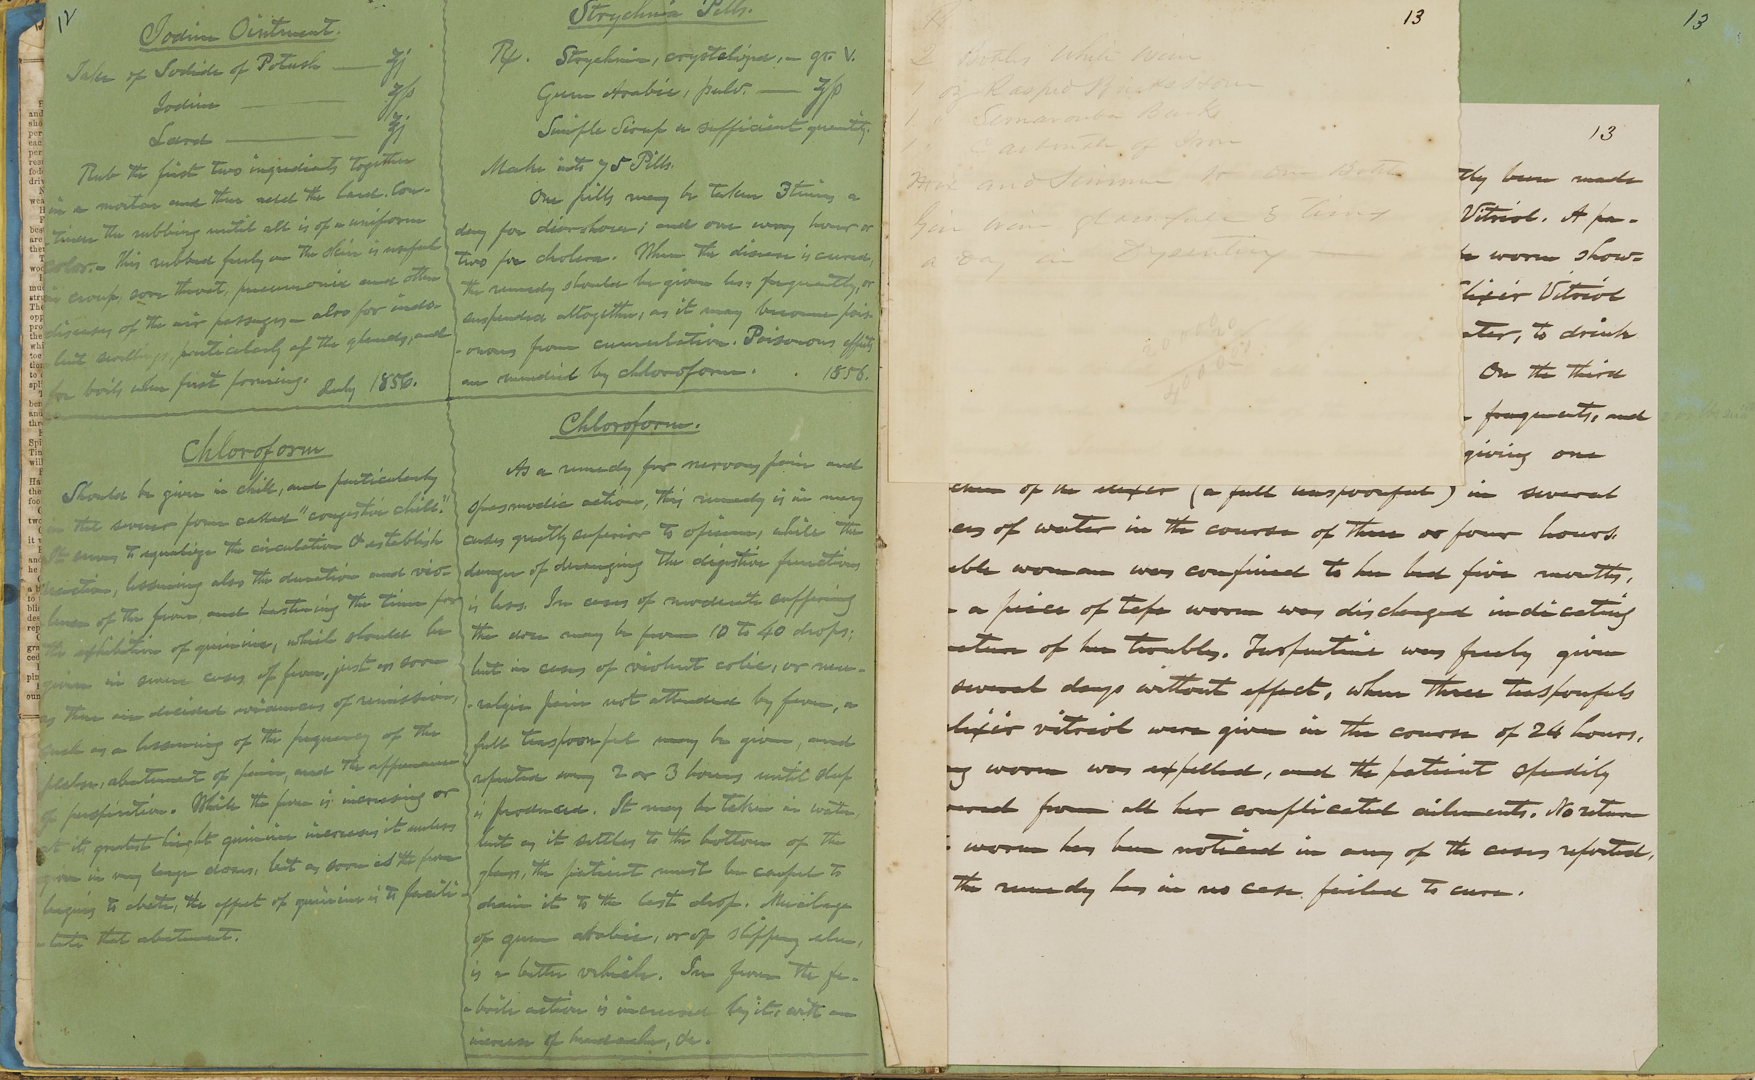 12
Iodine Ointment.
Take of Iodide of Potash — ʒj
Iodine — ʒſs
Lard — ℥j
Rub the first two ingredients together
in a mortar and then add the lard. Con-
tinue the rubbing until all is of a uniform
color. – This rubbed freely on the skin is useful
in croup, sore throat, pneumonia and other
diseases of the air passages – also for indo-
lent swellings, particularly of the glands, and
for boils when first forming. July 1856.
Chloroform
Should be given in chill, and particularly
in that severe form called "congestive chill."
It seems to equalize the circulation & establish
reaction, lessening also the duration and vio-
lence of the fever, and hastening the time for
the exhibition of quinine, which should be
given in severe cases of fever, just as soon
as there are decided evidences of remission,
such as a lessening of the frequency of the
pulse, abatement of pain, and the appearance
of perspiration. While the fever is increasing or
at its greatest height quinine increases it unless
given in very large doses, but as soon as the fever
begins to abate, the effect of quinine is to facili-
tate that abatement.
Strychnia Pills.
Rx. Strychnia, crystalized, – gr. V.
Gum Arabic, pulv. — ʒſs
Simple Sirup a sufficient quantity.
Make into 75 Pills.
One pill may be taken 3 times a
day for diarrhoea; and one every hour or
two for cholera. When the disease is cured,
the remedy should be given less frequently, or
suspended altogether, as it may become pois-
-onous from cumulation. Poisonous effects
are remedied by chloroform. 1856.
Chloroform.
As a remedy for nervous pain and
spasmodic action, this remedy is in many
cases greatly superior to opium, while the
danger of deranging the digestive functions
is less. In cases of moderate suffering
the dose may be from 10 to 40 drops;
but in cases of violent colic, or neu-
-ralgic pain not attended by fever, a
full teaspoonful may be given, and
repeated every 2 or 3 hours until sleep
is produced. It may be taken in water,
but as it settles to the bottom of the
glass, the patient must be careful to
drain it to the last drop. Mucilage
of gum Arabic, or of slippery elm,
is a better vehicle. In fever the fe-
-brile action is increased by it, with an
increase of headache, &c.
13
2 Bottles White Wine
1 oz Rasped
1 " Simarouba Bark
1 " Carbonate of Iron
Mix and Simmer to one Bottle
Give wine glass full 3 times
a Day in Dysentery
40000
13
13
tly been made
Vitriol. A pa-
worm show-
lixir Vitriol
ater, to drink
On the third
fragments, and
giving one
of the elixer (a full teaspoonful) in several
ces of water in the course of three or four hours.
able woman was confined to her bed five months,
a piece of tape worm was discharged indicating
ature of her troubles. Turpentine was freely given
several days without effect, when three teaspoonfuls
lixir vitriol were given in the course of 24 hours.
ng worm was expelled, and the patient speedily
vered from all her complicated ailments. No return
worm has been noticed in any of the cases reported,
the remedy has in no case failed to cure.